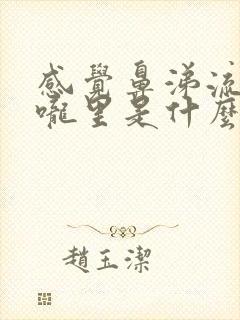 感覺鼻涕流
嚨里是什麼
趙玉潔